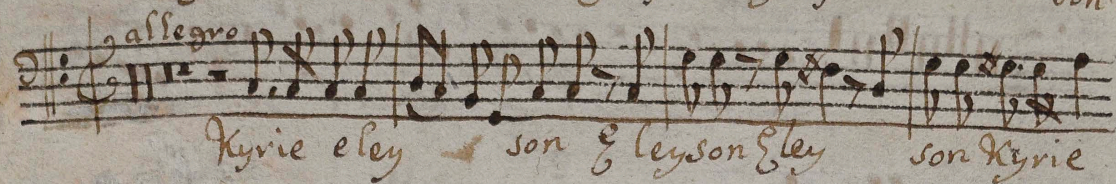 allegro
Kyrie eley son Eleyson Eley son Kyrie